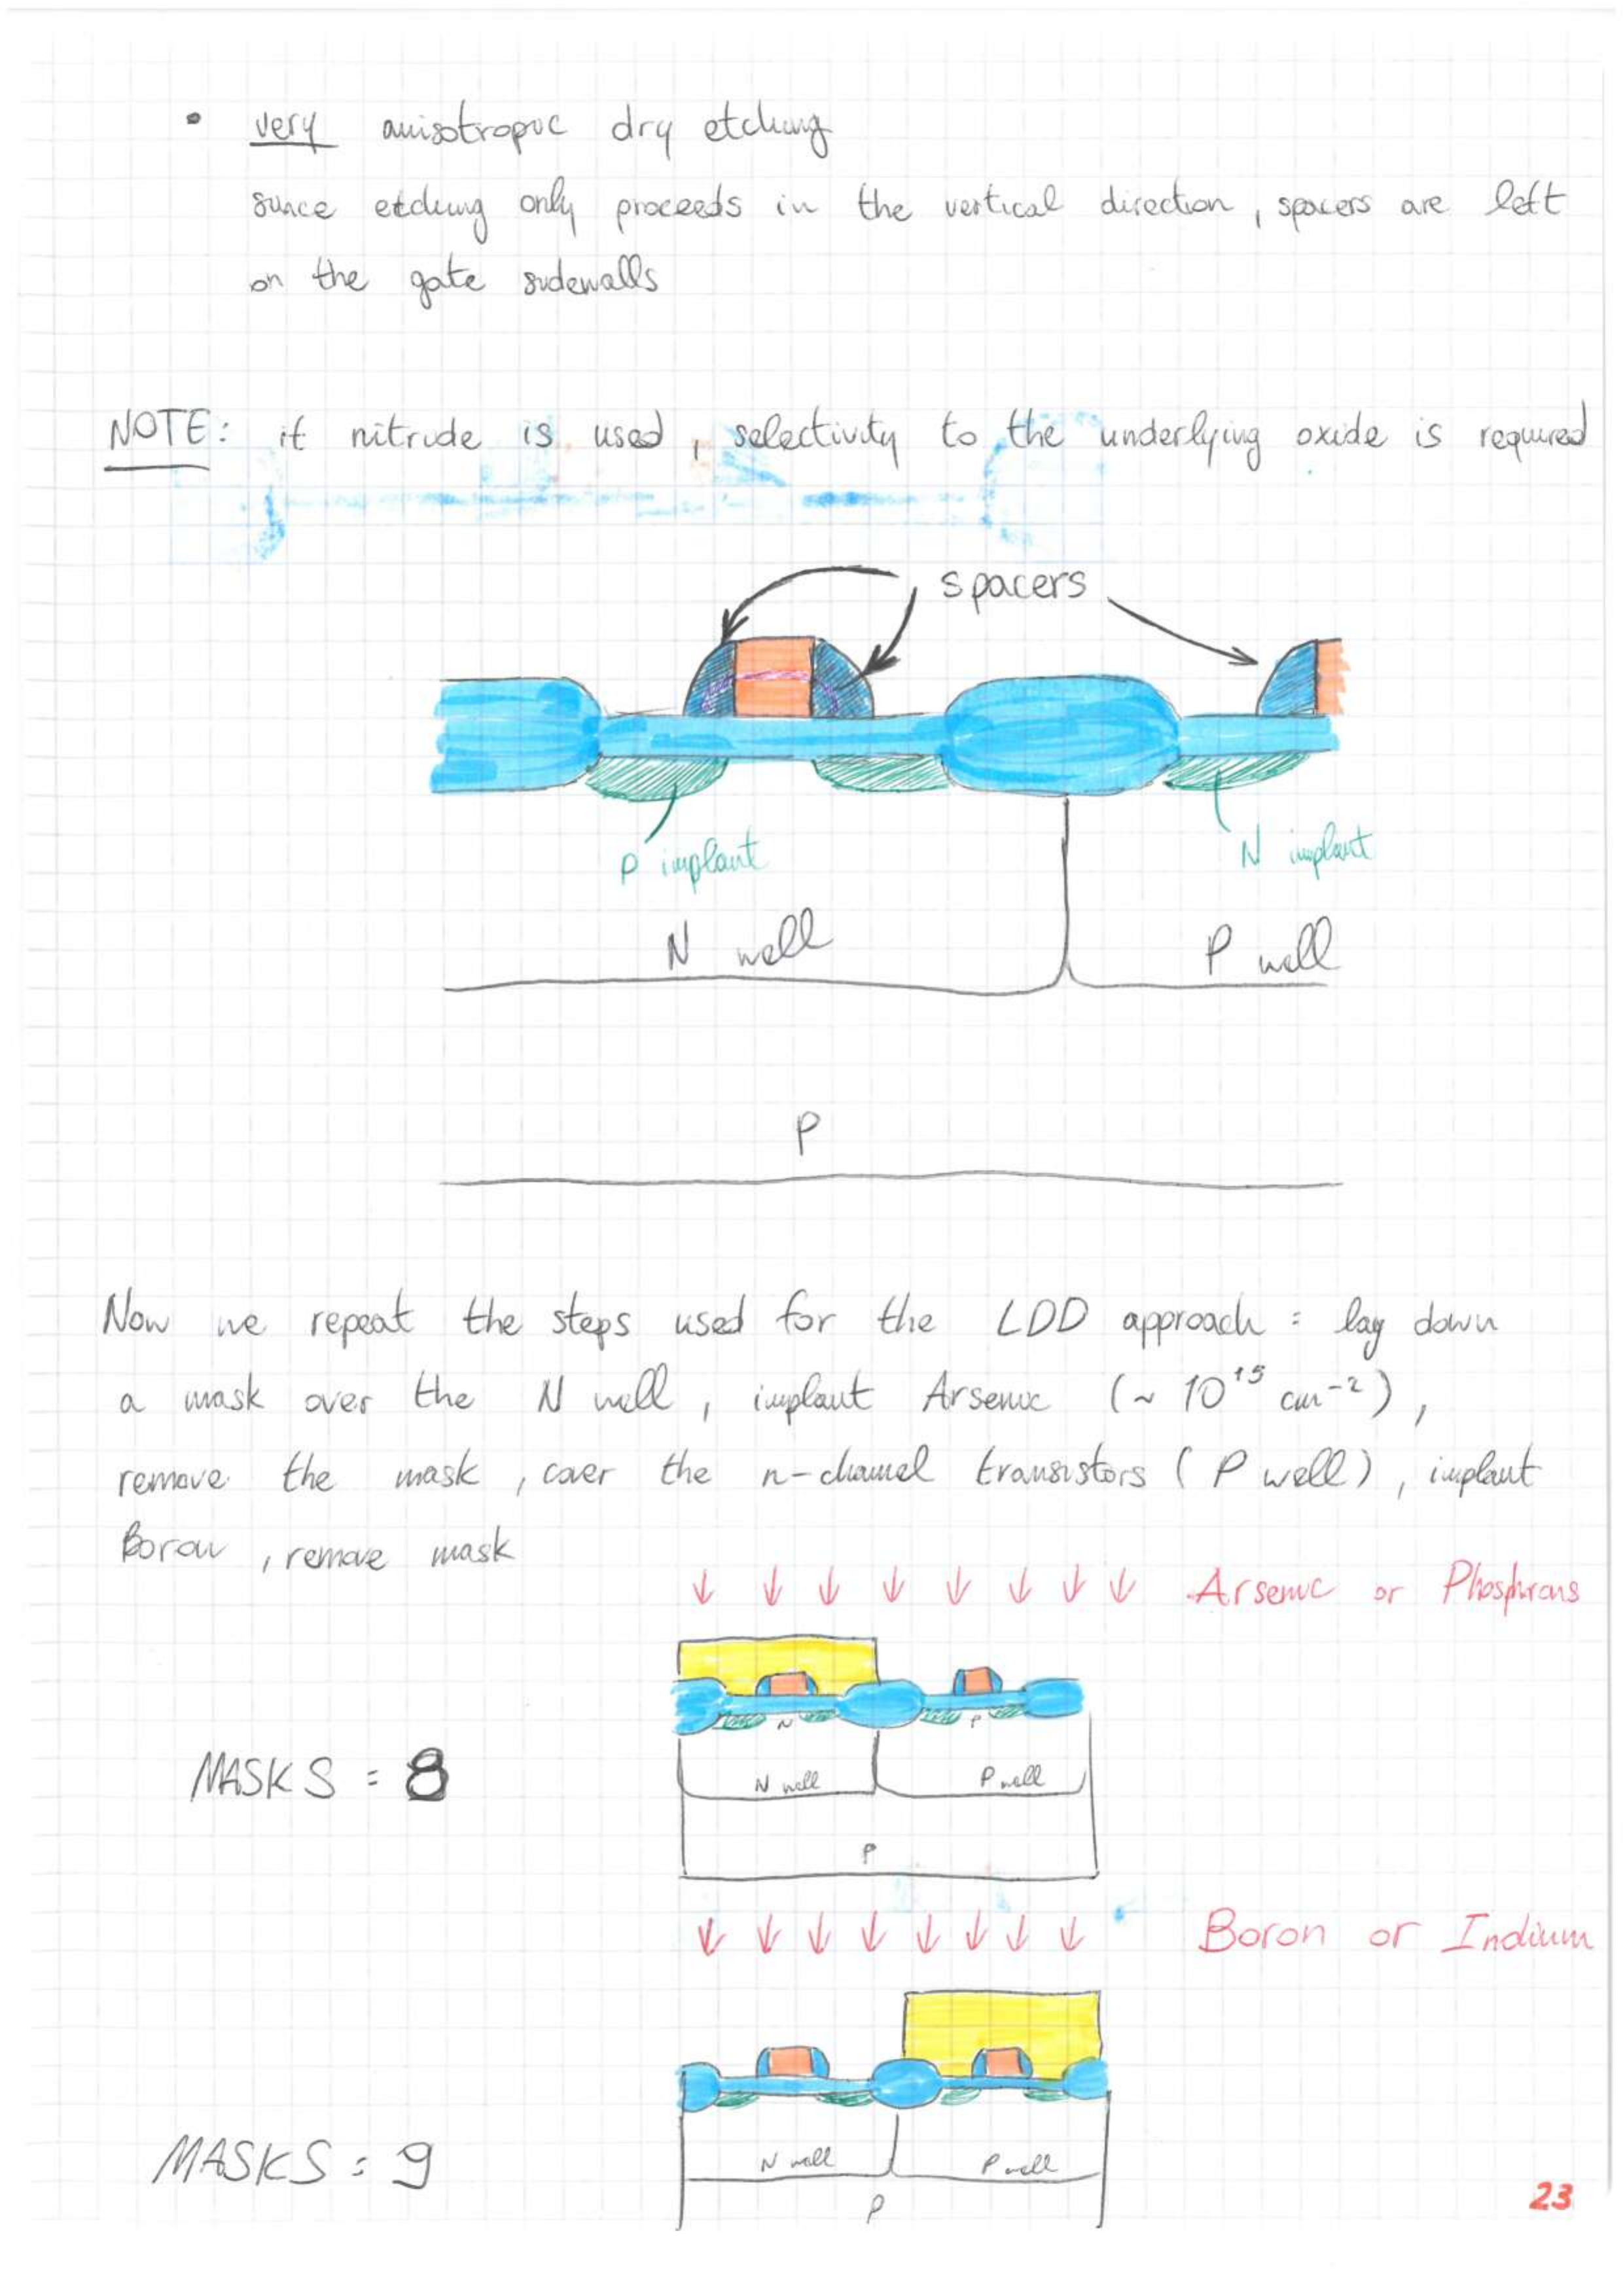 • very anisotropic dry etching
since etching only proceeds in the vertical direction, spacers are left
on the gate sidewalls
NOTE: if nitride is used, selectivity to the underlying oxide is required
spacers
P implant
N implant
N well
P well
P
Now we repeat the steps used for the LDD approach: lay down
a mask over the N well, implant Arsenic (~ 10¹⁵ cm⁻²),
remove the mask, cover the n-channel transistors (P well), implant
Boron, remove mask
Arsenic or Phosphorous
N P
MASKS = 8
N well P well
P
Boron or Indium
MASKS = 9
N well P well
P
23